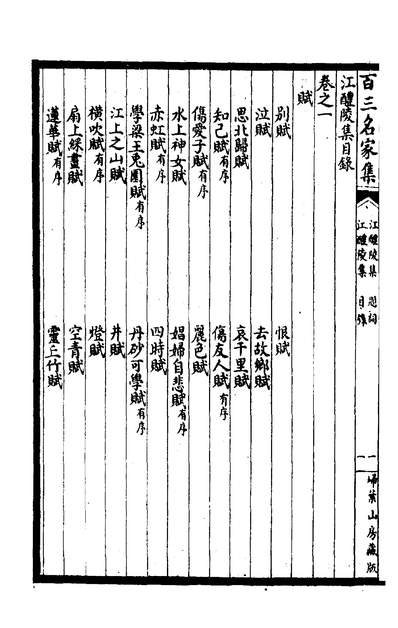 百三名家集
江醴陵集 題詞
江醴陵集 目錄
一
一
埽葉山房藏版
江醴陵集目錄
卷之一
賦
別賦
恨賦
泣賦
去故鄉賦
思北歸賦
哀千里賦
知己賦有序
傷友人賦有序
傷愛子賦有序
麗色賦
水上神女賦
娼婦自悲賦有序
赤虹賦有序
四時賦
學梁王兔園賦有序
丹砂可學賦有序
江上之山賦
井賦
橫吹賦有序
燈賦
扇上綵畫賦
空青賦
蓮華賦有序
靈丘竹賦